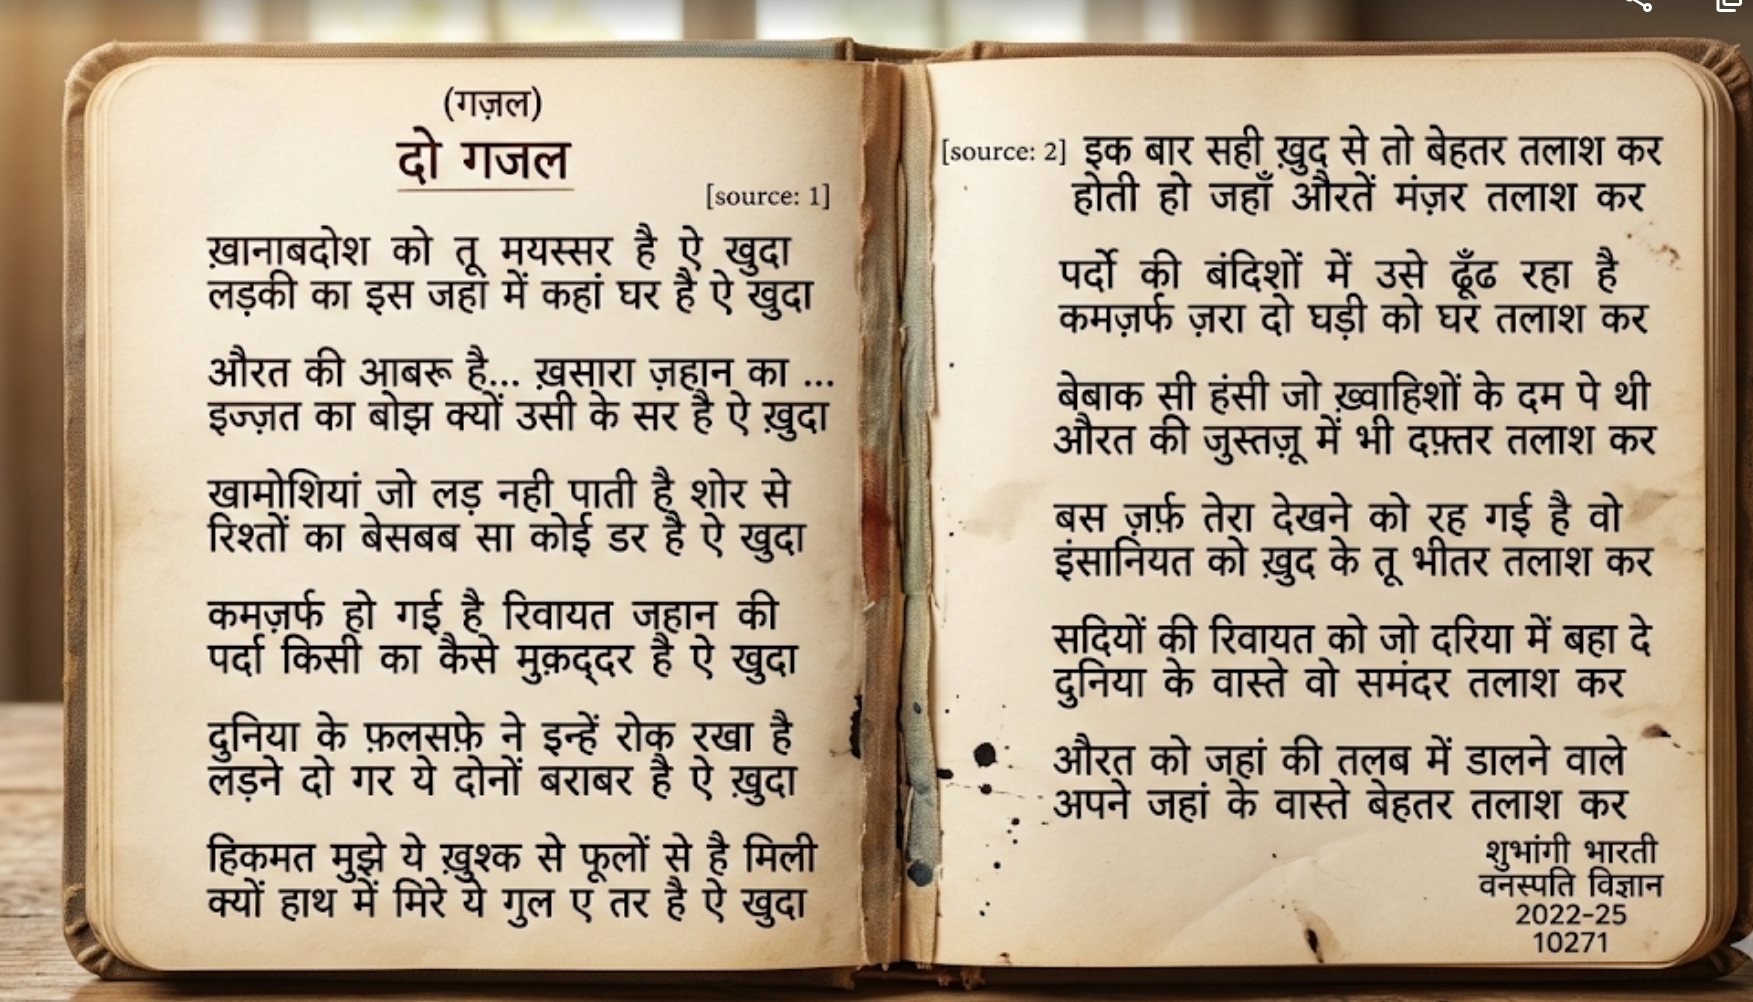 (गज़ल)
दो गजल
[source: 1]
ख़ानाबदोश को तू मयस्सर है ऐ खुदा
लड़की का इस जहां में कहां घर है ऐ खुदा
औरत की आबरू है... ख़सारा ज़हान का ...
इज्ज़त का बोझ क्यों उसी के सर है ऐ ख़ुदा
खामोशियां जो लड़ नही पाती है शोर से
रिश्तों का बेसबब सा कोई डर है ऐ खुदा
कमज़र्फ हो गई है रिवायत जहान की
पर्दा किसी का कैसे मुक़द्दर है ऐ खुदा
दुनिया के फ़लसफ़े ने इन्हें रोक रखा है
लड़ने दो गर ये दोनों बराबर है ऐ ख़ुदा
हिकमत मुझे ये ख़ुश्क से फूलों से है मिली
क्यों हाथ में मिरे ये गुल ए तर है ऐ खुदा
[source: 2] इक बार सही ख़ुद से तो बेहतर तलाश कर
होती हो जहाँ औरतें मंज़र तलाश कर
पर्दो की बंदिशों में उसे ढूँढ रहा है
कमज़र्फ ज़रा दो घड़ी को घर तलाश कर
बेबाक सी हंसी जो ख़्वाहिशों के दम पे थी
औरत की जुस्तज़ू में भी दफ़्तर तलाश कर
बस ज़र्फ़ तेरा देखने को रह गई है वो
इंसानियत को ख़ुद के तू भीतर तलाश कर
सदियों की रिवायत को जो दरिया में बहा दे
दुनिया के वास्ते वो समंदर तलाश कर
औरत को जहां की तलब में डालने वाले
अपने जहां के वास्ते बेहतर तलाश कर
शुभांगी भारती
वनस्पति विज्ञान
2022-25
10271